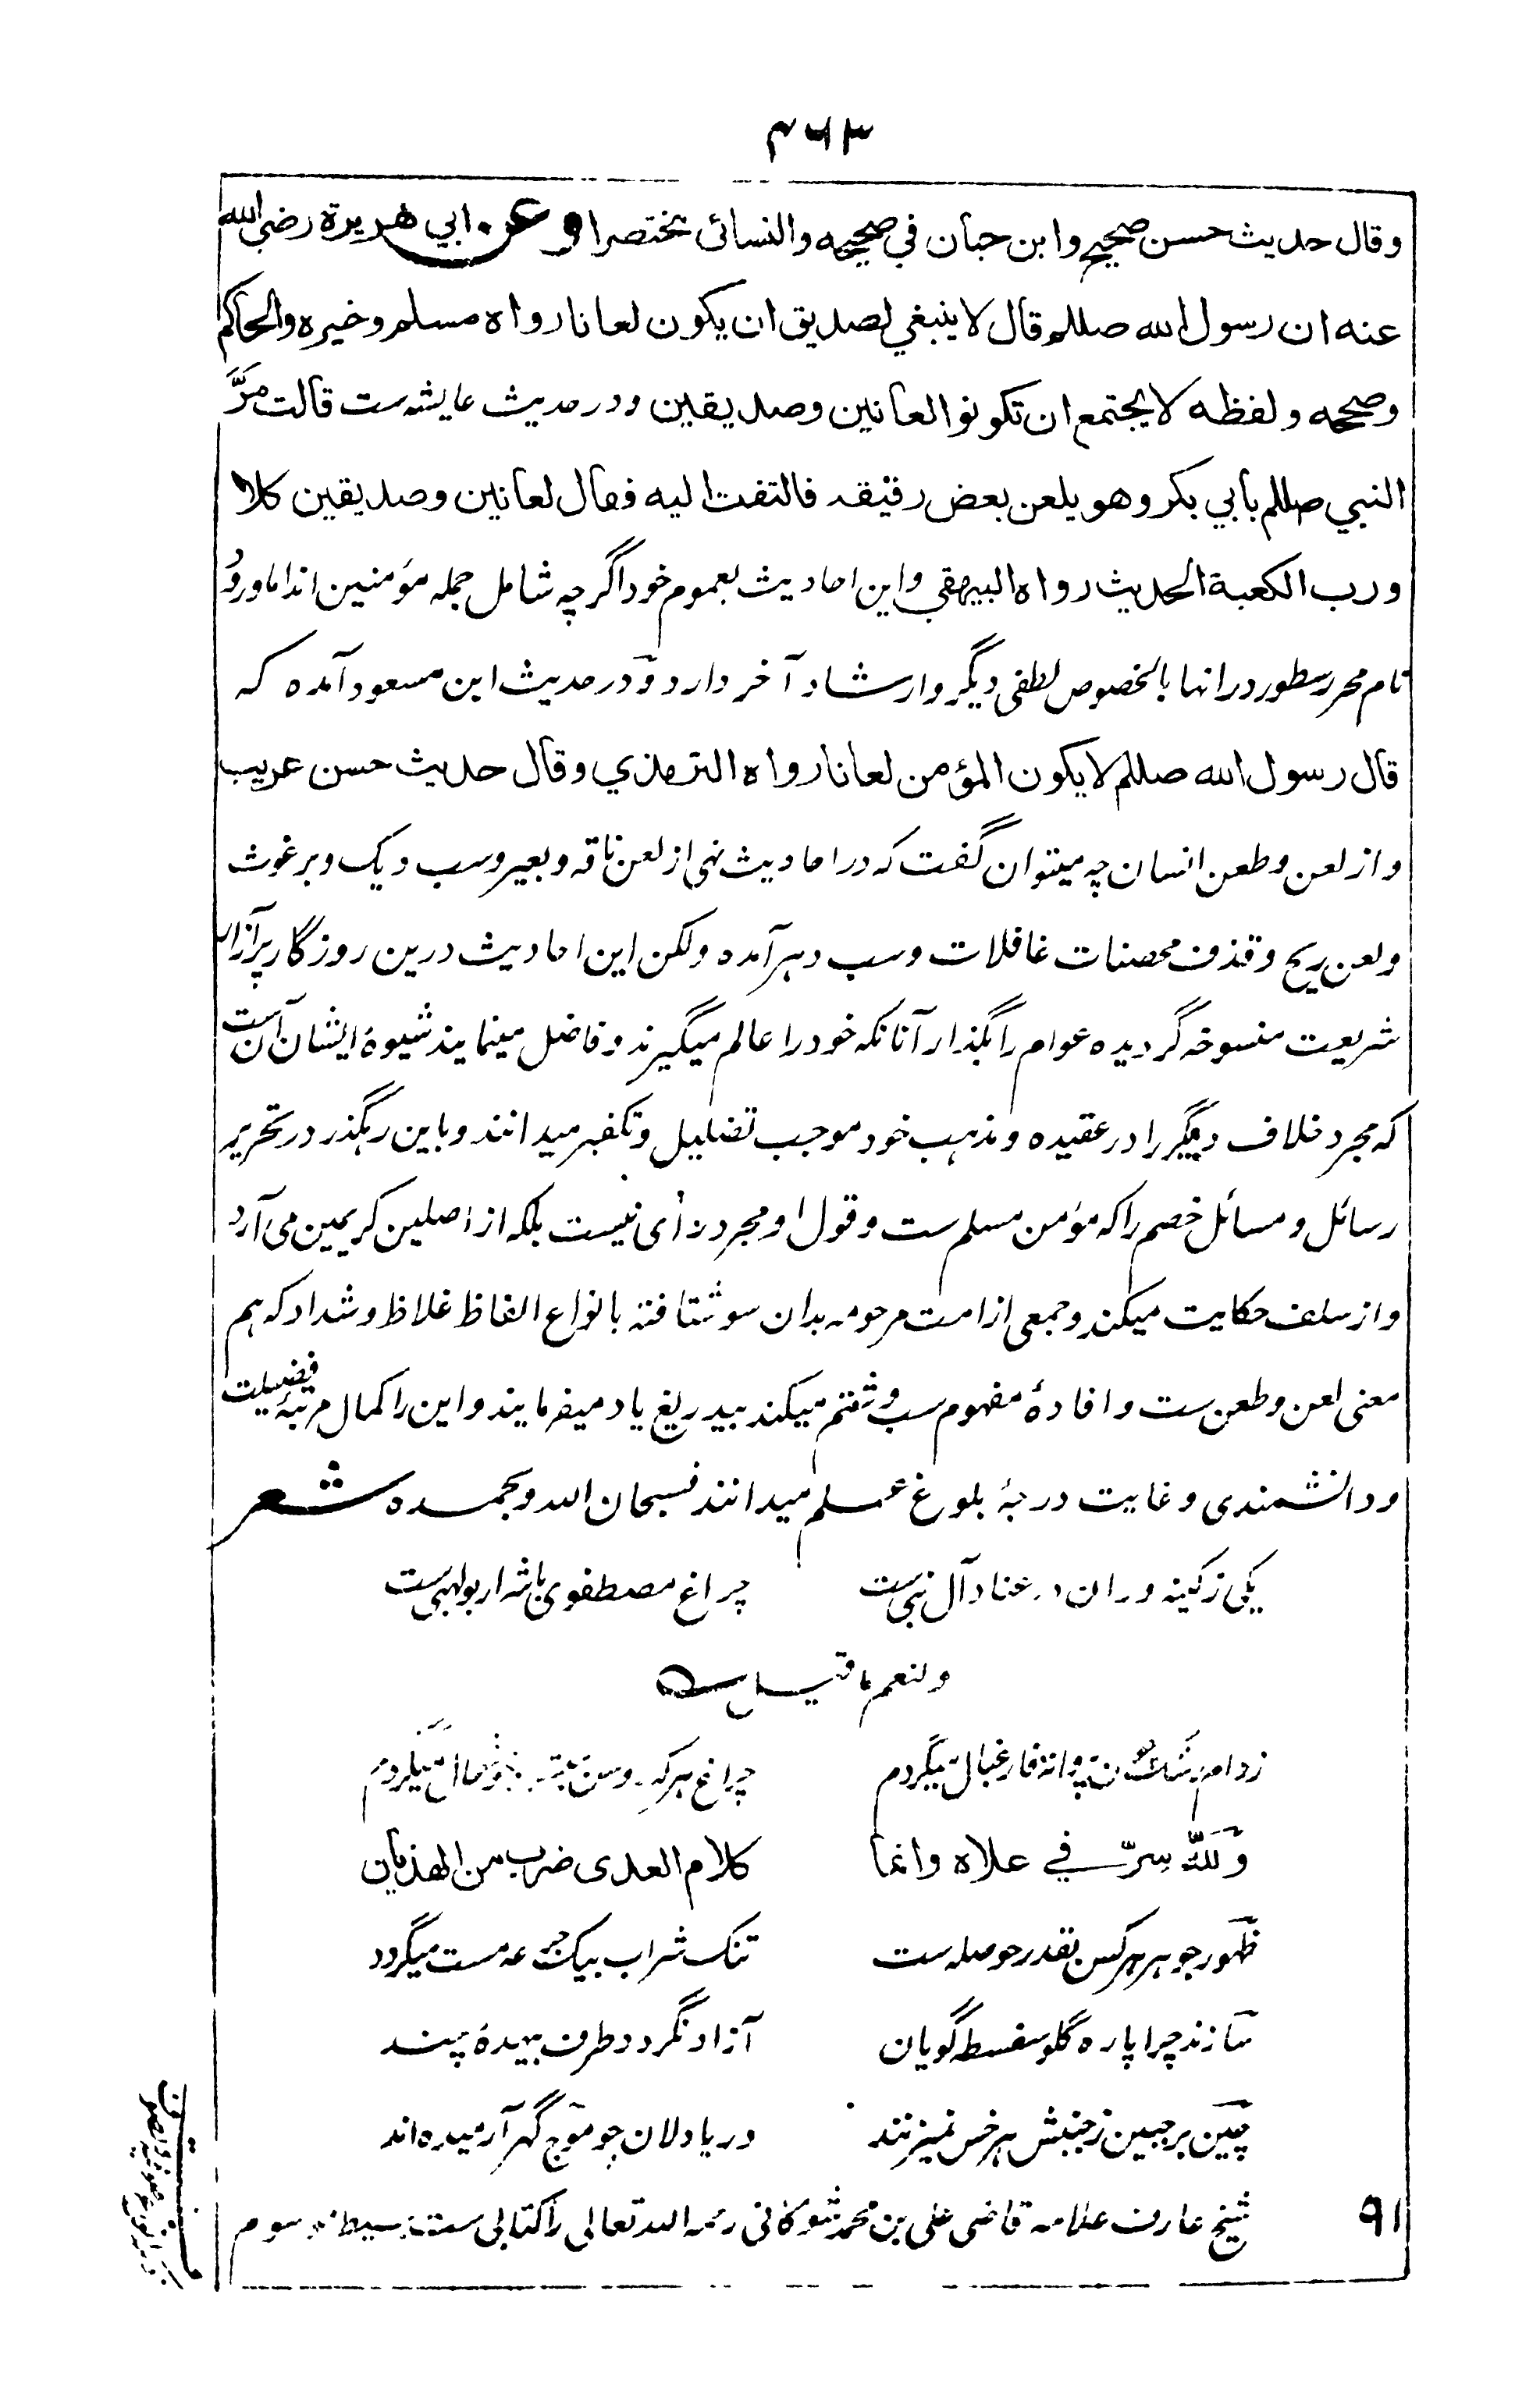 ۴۶۳
وقال حديث حسن صحيح وابن حبان في صحيحه والنسائى مختصرا وعن ابي هريرة رضي الله
عنه ان رسول الله صللم قال لا ينبغي لصديق ان يكون لعانا رواه مسلم وغيره والحاكم
وصححه ولفظه لا يجتمع ان تكونوا لعانين وصديقين ودر حدیث عایشه ست قالت مَرَّ
النبي صللم بأبي بكر وهو يلعن بعض رقيقه فالتفت اليه فقال لعانين وصديقين كلا
ورب الكعبة الحديث رواه البيهقي واین احادیث بعموم خود اگرچه شامل جمله مؤمنین اند اما ورودُ
نام محرر سطور در انها بالخصوص لطفی دیگر وارشاد آخر دارد و در حدیث ابن مسعود آمده که
قال رسول الله صللم لا يكون المؤمن لعانا رواه الترمذي وقال حديث حسن غريب
واز لعن وطعن انسان چه میتوان گفت که در احادیث نهی از لعن ناقه وبعیر وسب دیک وبرغوث
ولعن ریح وقذف محصنات غافلات وسب دهر آمده ولکن این احادیث درین روزگار پر آزار
شریعت منسوخه گردیده عوام را بگذار آنانکه خود را عالم میگیرند وفاضل مینمایند شیوهٔ ایشان آن است
که مجرد خلاف دیگر را در عقیده ومذهب خود موجب تضلیل وتکفیر میدانند وباین رهگذر در تحریر
رسائل ومسائل خصم را که مؤمن مسلم ست وقول او مجرد رأی نیست بلکه از اصلین کریمین می آرد
واز سلف حکایت میکند وجمعی از امت مرحومه بدان سو شتافته بانواع الفاظ غلاظ وشداد که هم
معنی لعن وطعن ست وافادهٔ مفهوم سب وشتم میکند بیدریغ یاد میفرمایند واین را کمال مرتبهٔ فضیلت
ودانشمندی وغایت درجهٔ بلوغ علم میدانند فسبحان الله وبحمده شعر
یکی ز کینه وران در عناد آل نبی ست
چراغ مصطفوی باشرار بولهبی ست
ولنعم ما قیل
پروانه فارغبال میگردم
چراغ هر که
ولله سرّ في علاه وانما
كلام العدى ضرب من الهذيان
ظهور جوهر هر کس بقدر حوصله ست
تنک شراب بیک جرعه مست میگردد
سازند چرا پاره گلو سفسطه گویان
آزاد نگردد طرف بیهده پسند
چین بر جبین ز جنبش هر خس نمیزنند
دریادلان چو موج گهر آرمیده اند
۹۱ شیخ عارف علامه قاضی علی بن محمد شوکانی رحمه الله تعالی را کتابی ست بسیط موسوم